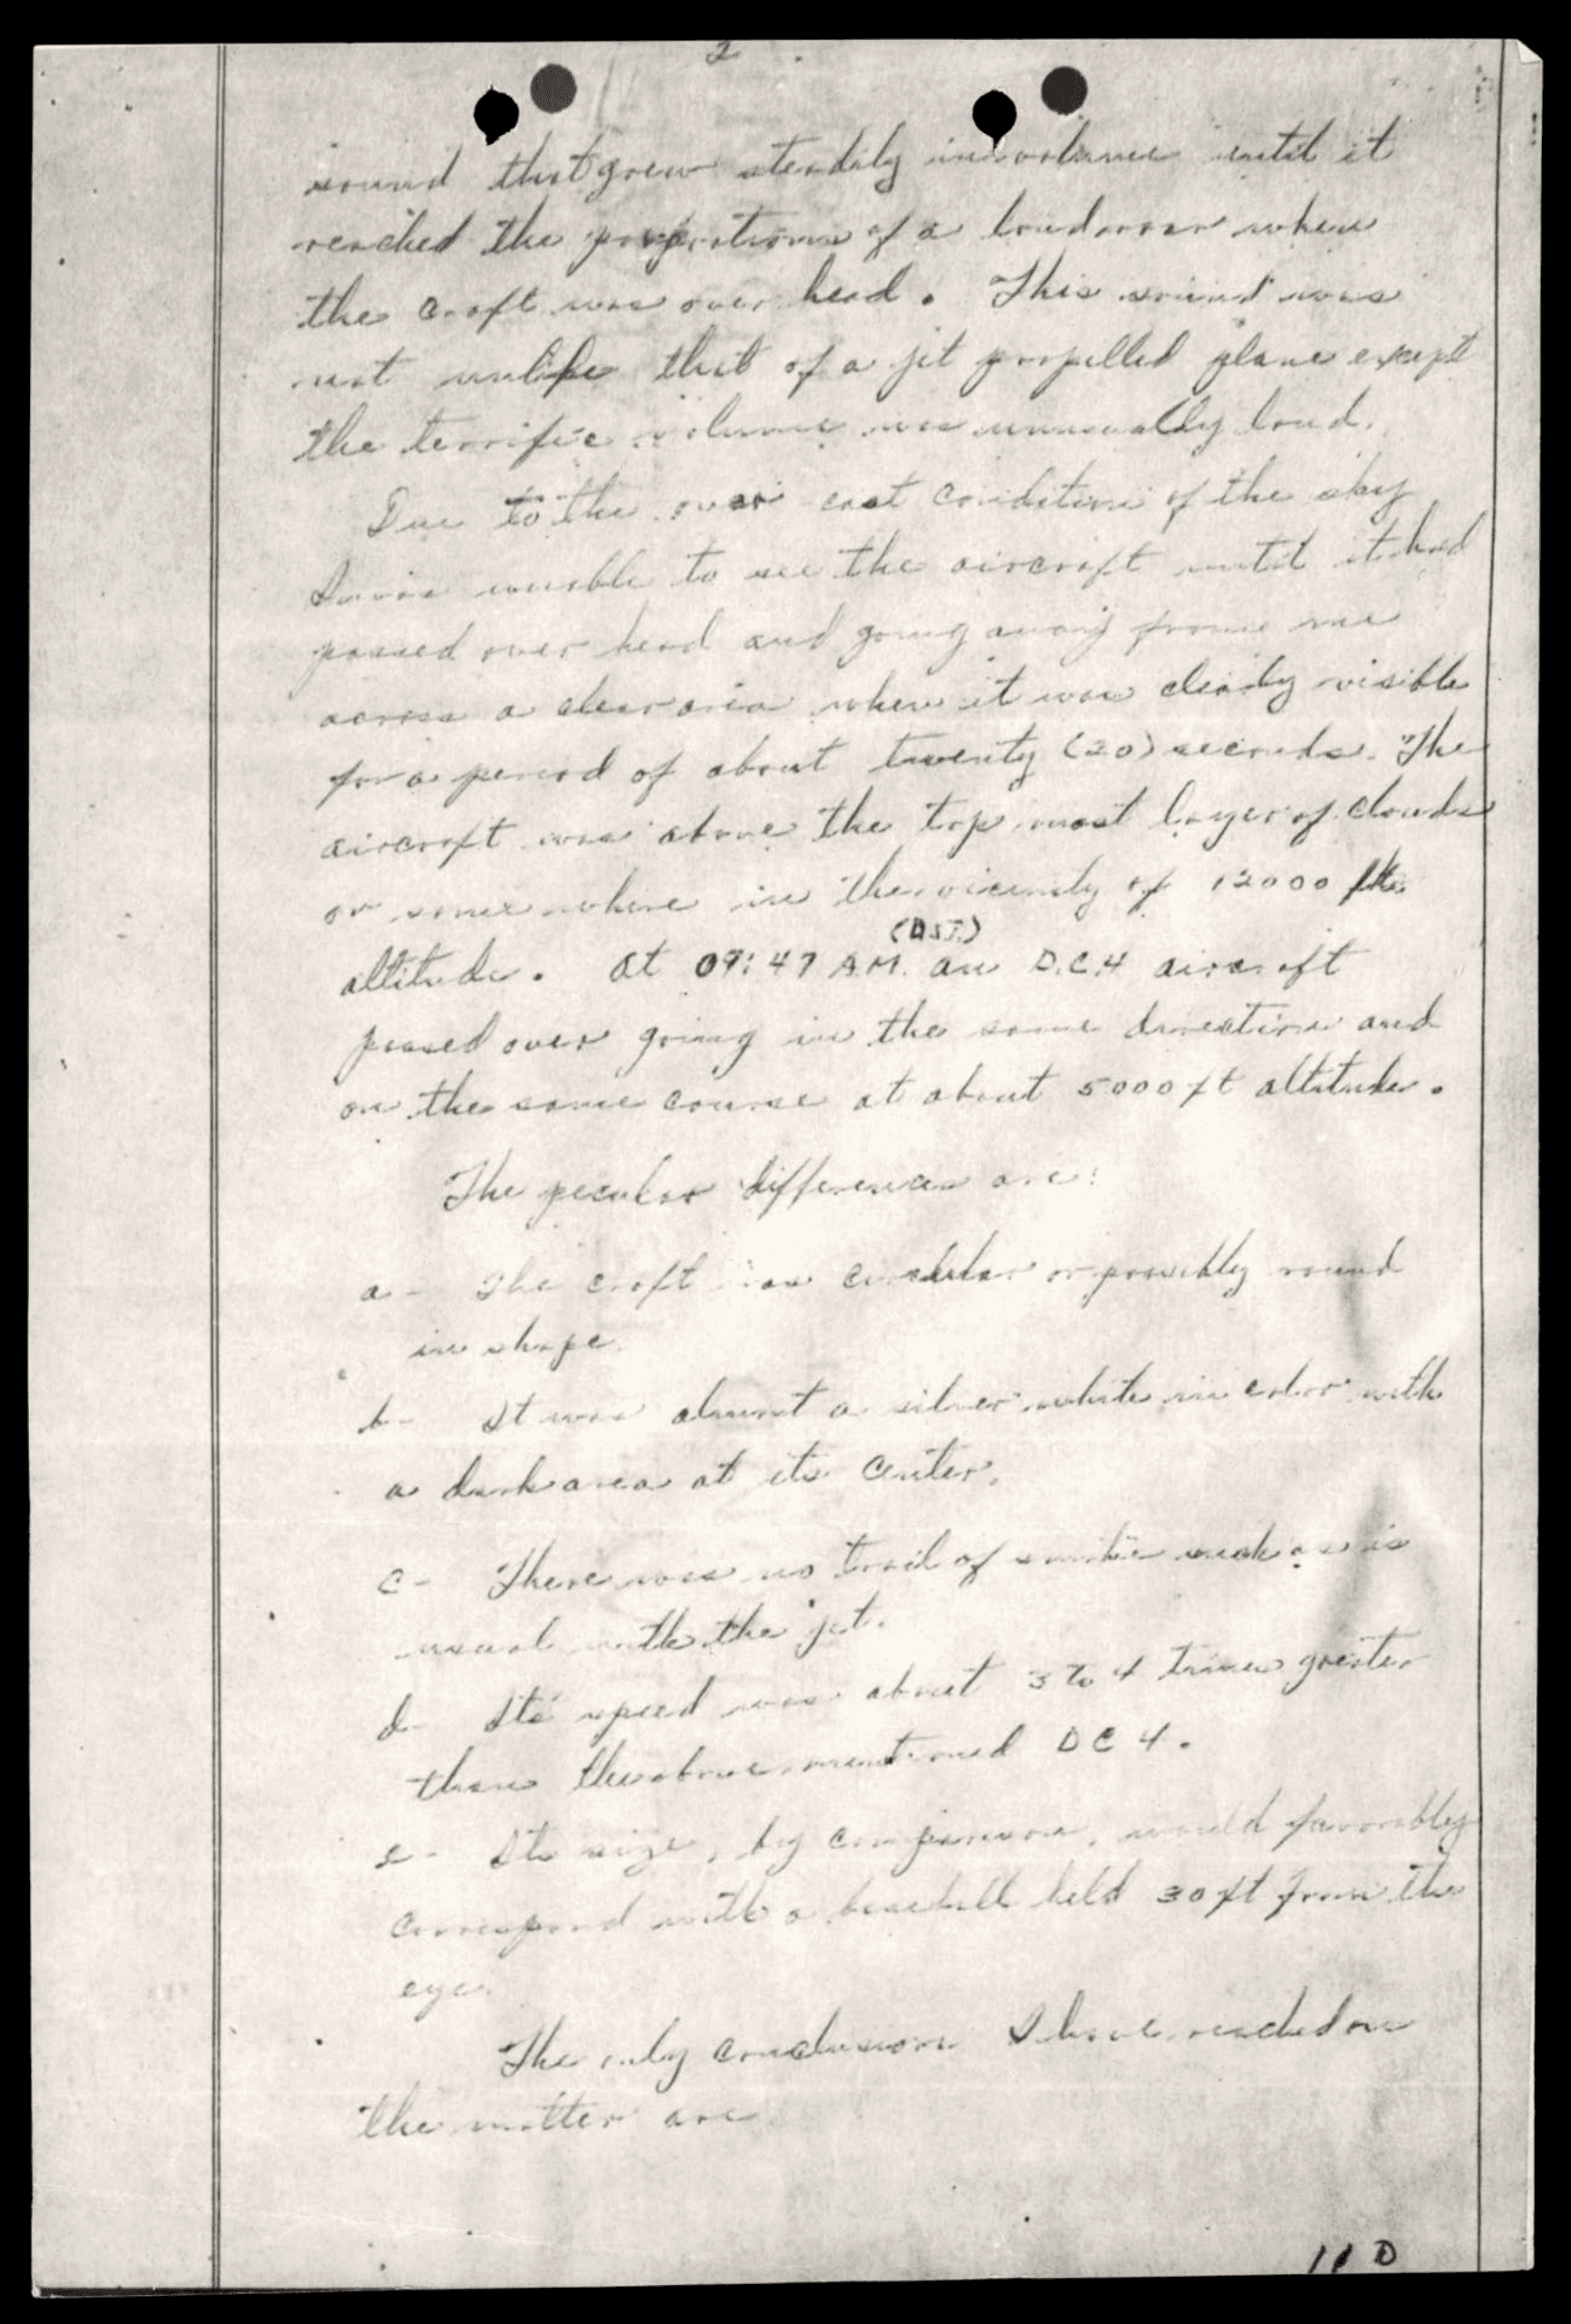 2
sound that grew steadily in volume until it
reached the proportions of a loud roar when
the craft was over head. This sound was
not unlike that of a jet propelled plane except
the terrific volume was unusually loud.
Due to the over cast condition of the sky
I was unable to see the aircraft until it had
passed over head and going away from me
across a clear area when it was clearly visible
for a period of about twenty (20) seconds. The
aircraft was above the top most layer of clouds
or some where in the vicinity of 12000 ft.
(DST.)
altitude. At 09:47 A.M. an D.C.4 aircraft
passed over going in the same direction and
on the same course at about 5000 ft altitude.
The peculiar differences are:
a- The craft was circular or possibly round
in shape.
b- It was almost a silver white in color with
a dark area at its center.
c- There was no trail of smoke such as is
usual with the jet.
d- Its speed was about 3 to 4 times greater
than the above mentioned DC 4.
e- Its size, by comparison, would favorably
correspond with a baseball held 30 ft from the
eye.
The only conclusion I have reached on
the matter are
11 D